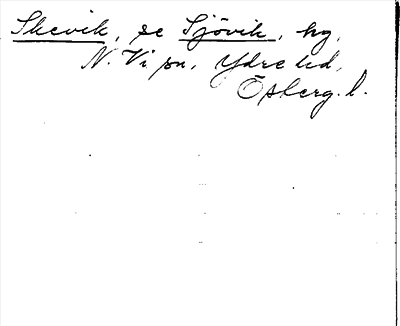 Skevik, se Sjövik, hg,
N. Vi sn, Ydre hd,
Österg. l.